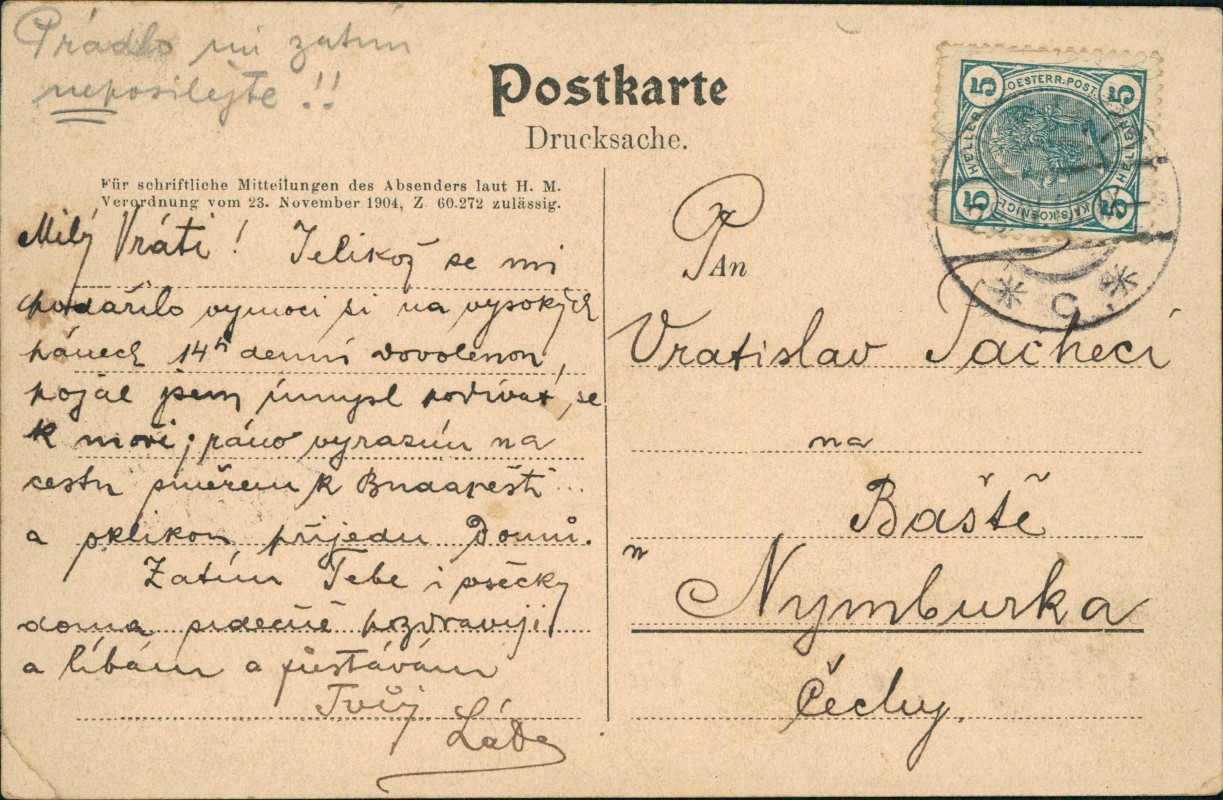 Prádlo mi zatím
neposílejte!!
Postkarte
Drucksache.
Für schriftliche Mitteilungen des Absenders laut H. M.
Verordnung vom 23. November 1904, Z 60.272 zulässig.
Milý Vráti! Jelikož se mi
podařilo vymoci si na vysokých
pánech 14ti denní dovolenou,
pojal jsem úmysl podívat se
k moři; ráno vyrazím na
cestu směrem k Budapešti...
a oklikou přijedu domů.
Zatím Tebe i všecky
doma srdečně pozdravuji
a líbám a zůstávám
Tvůj
Láďa
5 OESTERR. POST. 5
HELLER HELLER
5 KAIS. KOENIGL. 5
* C *
Pan
Vratislav Pachecí
na
Baště
u Nymburka
Čechy.